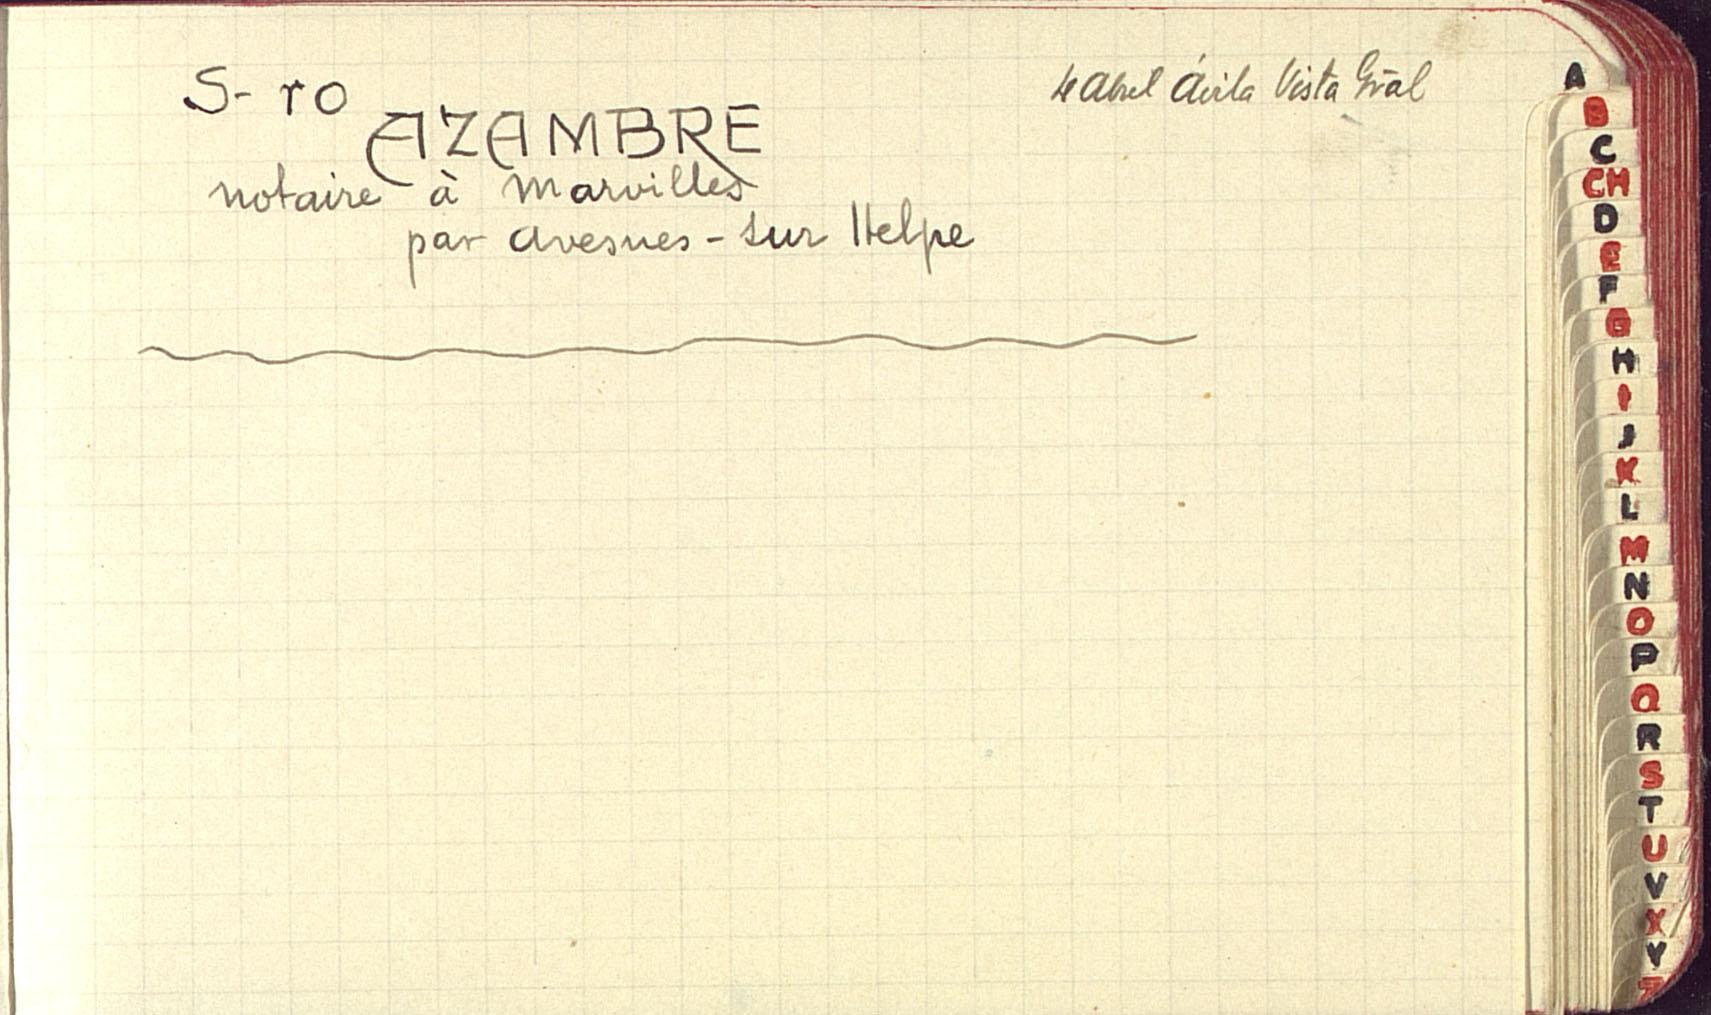 S- ro
AZAMBRE
notaire à Marvilles
par Avesnes-sur Helpe
4 Abril Ávila Vista Gral
A
B
C
CH
D
E
F
G
H
I
J
K
L
M
N
O
P
Q
R
S
T
U
V
X
Y
Z